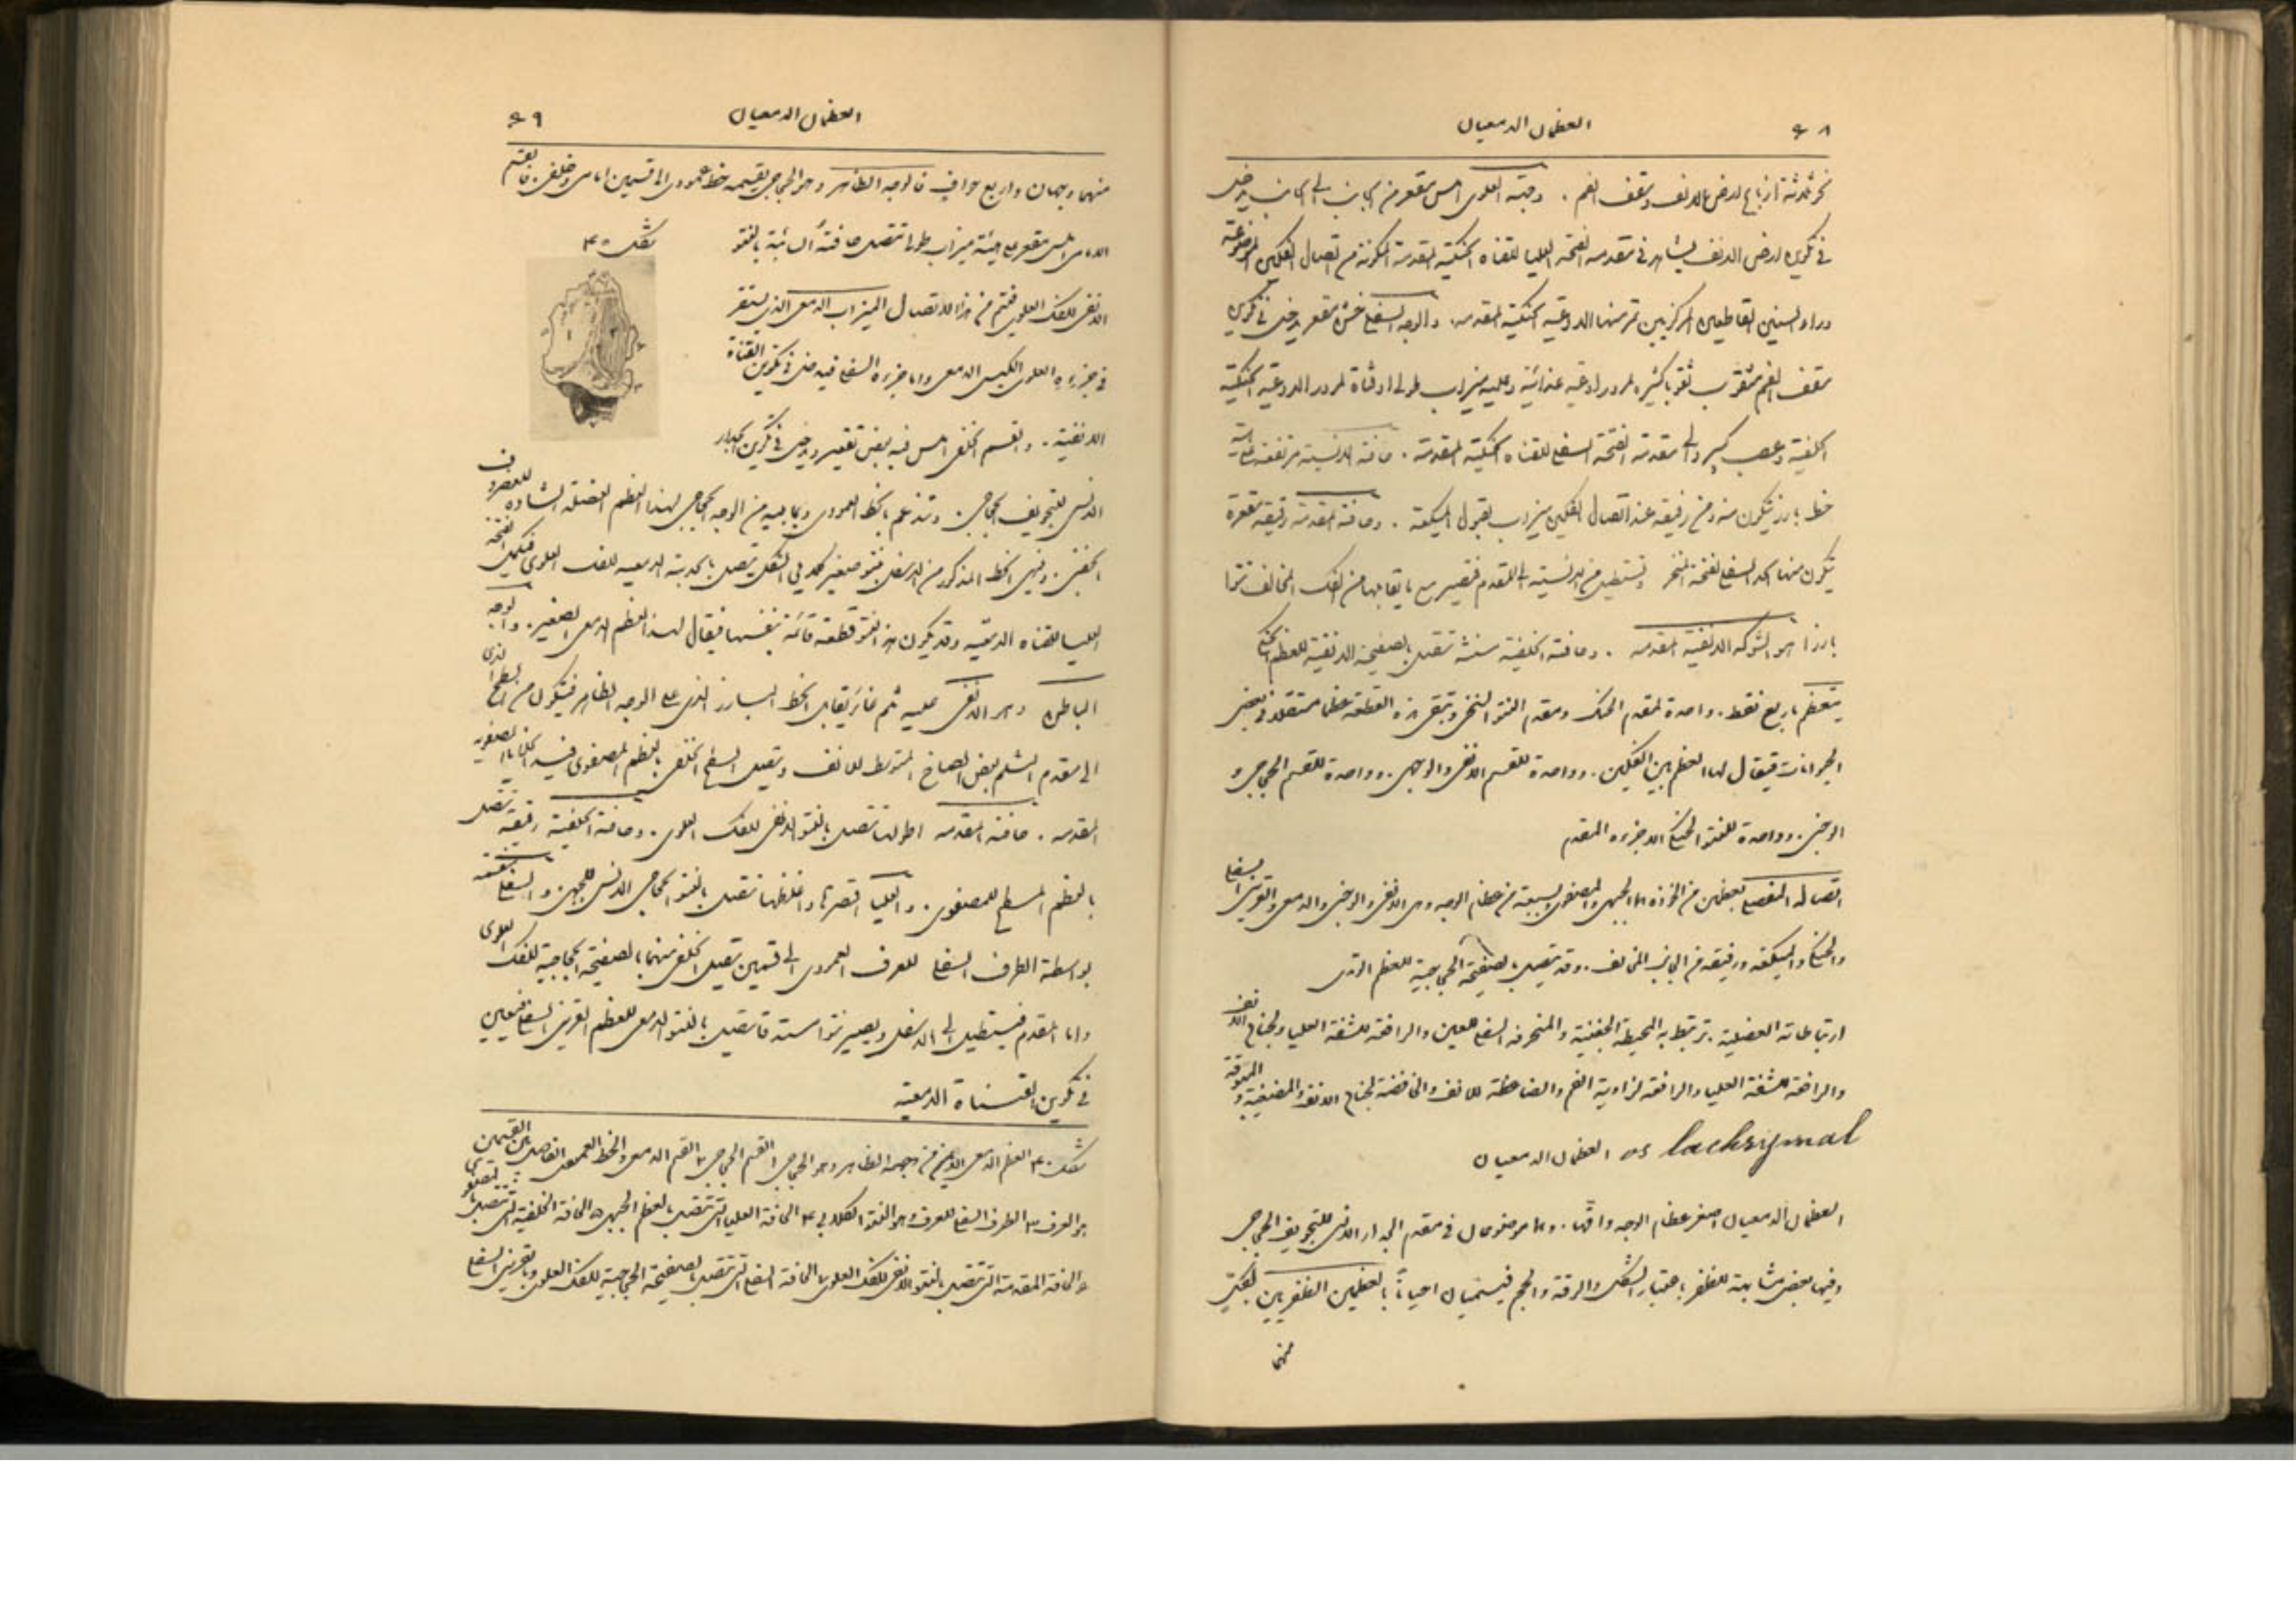 ٤٨ العظمان الدمعيان
نحو ثلاثة ارباع ارض الانف وسقف الفم . وجهته العلوي املس مقعر من الجانب الى الجانب يدخل
في تكوين ارض الانف يشاهد في مقدمه الفتحة العليا للقناه الحنكية المقدمة المكونة من اتصال الفكين الموضوعة
وراء السنين القاطعين المركزيين تمر منها الاوعية الحنكية المقدمه. والوجه السفلي خشن مقعر يدخل في تكوين
سقف الفم مثقوب ثقوبا كثيره لمرور اوعية غذائية وعليه ميزاب طولي او قناة لمرور الاوعية الحنكية
الخلفية وعصب كبير والى مقدمه الفتحة السفلى للقناه الحنكية المقدمة . حافته الانسية مرتفعة
خط بارز يتكون منه ومن رفيقه عند اتصال الفكين ميزاب لقبول الميكعة . وحافته المقدمة رقيقة مقعرة
يتكون منها الحد السفلي لفتحة المنخر وتستطيل من الانسية الى المقدم فتصير مع ما يقابلها من الفك المخالف نتوا
بارزا هو الشوكه الانفية المقدمه . وحافته الخلفية تتصل بالصفيحة الانفية للعظم الحنكي
يتعظم باربع نقط . واحدة لمقدم الحنك ومقدم النتو السنخي وتبقى هذه القطعة عظما مستقلا في بعض
الحيوانات فيقال لها العظم بين الفكين . وواحدة للقسم الانفي والوجهي . وواحدة للقسم الحجاجي و
الوجني . وواحدة للنتو الحنكي الا جزءه المقدم
اتصاله المفصلي بعظمين من الخوذه هما الجبهي والمصفوي وبسبعة من عظام الوجه وهي الانفي والوجني والدمعي والقريني السفلي
والحنكي والميكعة ورفيقه من الجانب المخالف . وقد يتصل بالصفيحة الحجاجية للعظم الوتدي
ارتباطاته العضلية . ترتبط به المحيطة الجفنية والمنحرفه السفلى للعين والرافعة للشفة العليا ولجناح الانف
والرافعة للشفة العليا والرافعة لزاوية الفم والضاغطة للانف والخافضة لجناح الانف والمضغية و المبوقة
os lachrymal العظمان الدمعيان
العظمان الدمعيان اصغر عظام الوجه وارقها . وهما موضوعان في مقدم الجدار الانسي للتجويف الحجاجي
وفيهما بعض مشابهة للظفر باعتبار الشكل والرقة والحجم فيسميان احياناً بالعظمين الظفريين لكل
منهما
العظمان الدمعيان ٤٩
منهما وجهان واربع حواف فالوجه الظاهر وهو الحجاجي يقسمه خط عمودي الى قسمين امامي وخلفي . فالقسم
شكل ٤٠
الامامي املس مقعر على هيئة ميزاب طولي تتصل حافته السائبة بالنتو
الانفي للفك العلوي فيتم من هذا الاتصال الميزاب الدمعي الذي يستقر
في جزءه العلوي الكيس الدمعي واما جزءه السفلي فيدخل في تكوين القناة
الانفية . والقسم الخلفي املس فيه بعض تقعير ويدخل في تكوين الجدار
الانسي للتجويف الحجاجي . وتندغم بالخط العمودي وبما يليه من الوجه الحجاجي لهذا العظم العضلة الشادة للغضروف
الجفني . وينتهي الخط المذكور من الاسفل بنتو صغير كلابي الشكل يتصل بالحدبة الدمعيه للفك العلوي فيكمل الفتحة
العليا للقناه الدمعيه وقد يكون هذا النتو قطعة قائمة بنفسها فيقال لهذا العظم الدمعي الصغير . والوجه
الباطن وهو الانفي عليه ثلم غائر يقابل الخط البارز الذي على الوجه الظاهر فيتكون من السطح الذي
الى مقدم الثلم بعض الصماخ المتوسط للانف ويتصل السطح الخلفي بالعظم المصفوي فيسد الخلايا المصفويه
المقدمه . حافته المقدمه اطولها تتصل بالنتو الانفي للفك العلوي . وحافته الخلفية رقيقة تتصل
بالعظم المسطح للمصفوي . والعليا اقصرها واغلظها تتصل بالنتو الحجاجي الانسي للجبهي . والسفلى منقسمة
بواسطة الطرف السفلي للعرف العمودي الى قسمين يتصل الخلفي منهما بالصفيحة الحجاجية للفك العلوي
واما المقدم فيستطيل الى الاسفل ويصير نتوا مستدقا يتصل بالنتو الدمعي للعظم القريني السفلي فيعين
في تكوين القناة الدمعية
شكل ٤٠ العظم الدمعي الايمن من وجهه الظاهر وهو الحجاجي ١ القسم الحجاجي ٢ القسم الدمعي والخط العمودي الفاصل بين القسمين
هو العرف ٣ الطرف السفلي للعرف وهو النتو الكلابي ٤ الحافة العليا التي تتصل بالعظم الجبهي ٥ الحافة الخلفية التي تتصل بالمصفوي
٦ الحافة المقدمة التي تتصل بالنتو الانفي للفك العلوي ٧ الحافة السفلى التي تتصل بالصفيحة الحجاجية للفك العلوي وبالقريني السفلي